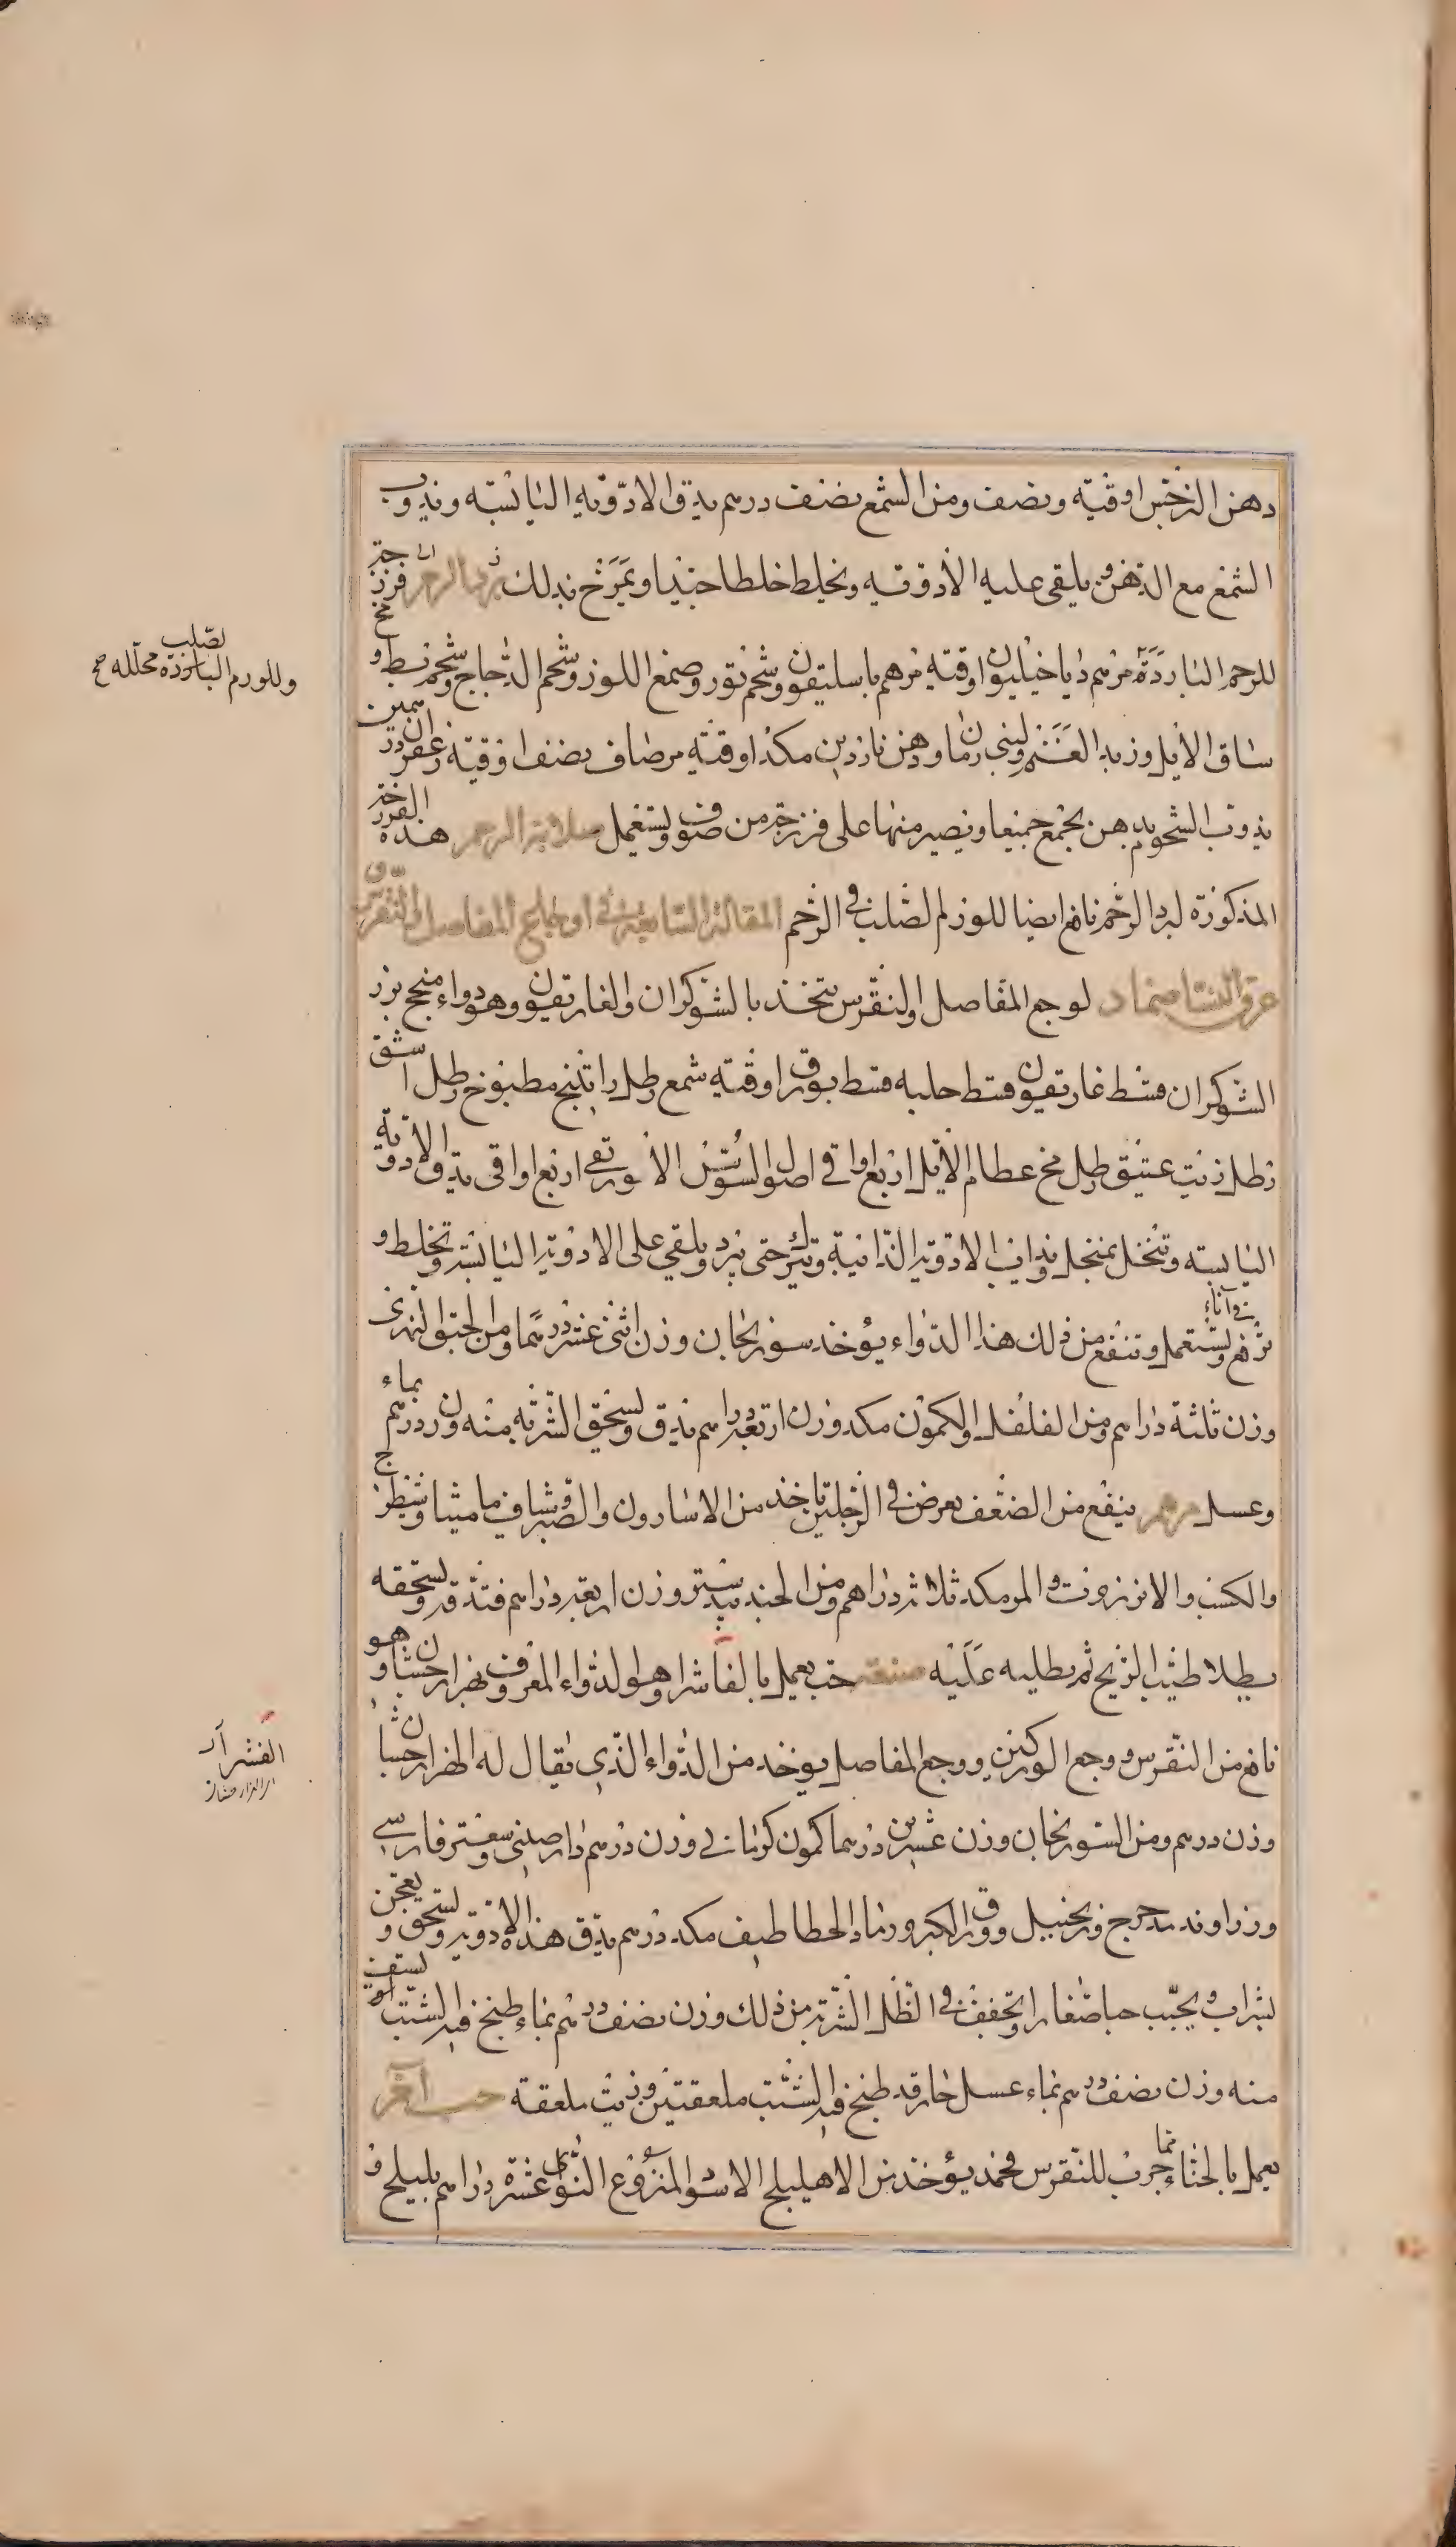 دهن النرجس اوقية ونصف ومن الشمع نصف درهم يدق الادوية اليابسة ويذوب
الشمع مع الدهن ويلقى عليه الادوية ويخلط خلطا جيدا ويمرخ بذلك برد الرحم فرزجة
للرحم الباردة مرهم دياخيليون اوقية مرهم باسليقون وشحم ثور وصمغ اللوز وشحم الدجاج وشحم بط و
وللورم الصلب الباردة محللة صح
ساق الايل وزبد الغنم ولبنى رمان ودهن ناردين مكد اوقية مر صاف نصف اوقية زعفران درهمين
يذوب الشحوم بدهن يجمع جميعا ويصير منها على فرزجة من صوف ويستعمل صلابة الرحم هذه الفرزجة
المذكورة لبرد الرحم نافع ايضا للورم الصلب في الرحم المقالة السابعة في اوجاع المفاصل والنقرس و
عرق النسا ضماد لوجع المفاصل والنقرس يتخذ بالشوكران والغاريقون وهو دواء منجح بزر
الشوكران قسط غاريقون قسط حلبه قسط بورق اوقية شمع رطل راتينج مطبوخ رطل اشق
رطل زيت عتيق رطل مخ عظام الايل اربع اواقي اصل السوسن الانورقي اربع اواقي يدق الادوية
اليابسة وتنخل بمنخل ويذاب الادوية الذائبة وتترك حتى يبرد ويلقي على الادوية اليابسة وتخلط و
ترفع في اناء ويستعمل وتنفع من ذلك هذا الدواء يؤخذ سورنجان وزن اثنى عشر درهما ومن الحبق النهري
وزن ثلثة دراهم ومن الفلفل والكمون مكد وزن اربعة دراهم يدق ويسحق الشربة منه وزن درهم بماء
وعسل مرهم ينفع من الضعف يعرض في الرجلين تاخذ من الاسارون والصبر واقاقيا ماميثا وشيطرج
والكست والانزروت والمر مكد ثلاثة دراهم ومن الجندبيدستر وزن اربعة دراهم فتدقه وتسحقه
بطلا طيب الريح ثم يطليه عليه صنعة حب يعمل بالفاشرا وهو الدواء المعروف بهزارجشان وهو
نافع من النقرس ووجع الوركين ووجع المفاصل يوخذ من الدواء الذي يقال له الهزارجشان
الفشرا
وزن درهم ومن السورنجان وزن عشرين درهما كمون كرماني وزن درهم دارصيني وسعتر فارسي
وزراوند مدحرج وزنجبيل وورق الكبر ورماد الخطاطيف مكد درهم يدق هذه الادوية وتسحق ويعجن
بشراب ويحبب حبا صغارا ويجفف في الظل الشربة من ذلك وزن نصف درهم بماء طبخ فيه الشبت او يسف
منه وزن نصف درهم بماء عسل حار قد طبخ فيه الشبت ملعقتين وزيت ملعقة حب آخر
يعمل بالحناء مما جرب للنقرس فحمد يؤخذ من الاهليلج الاسود المنزوع النوى عشرة دراهم بليلج و